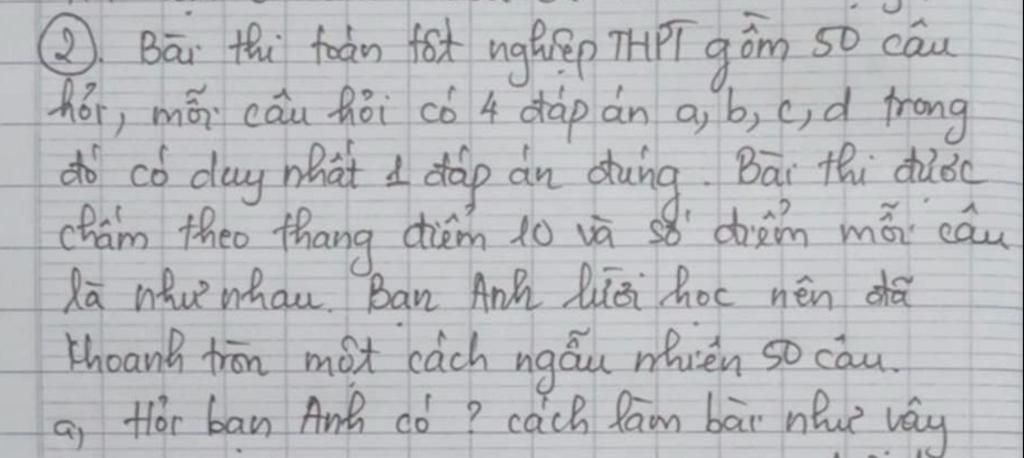 ② Bài thi toán tốt nghiệp THPT gồm 50 câu
hỏi, mỗi câu hỏi có 4 đáp án a, b, c, d trong
đó có duy nhất 1 đáp án đúng. Bài thi được
chấm theo thang điểm 10 và số điểm mỗi câu
là như nhau. Bạn Anh lười học nên đã
khoanh tròn một cách ngẫu nhiên 50 câu.
a, Hỏi bạn Anh có ? cách làm bài như vậy